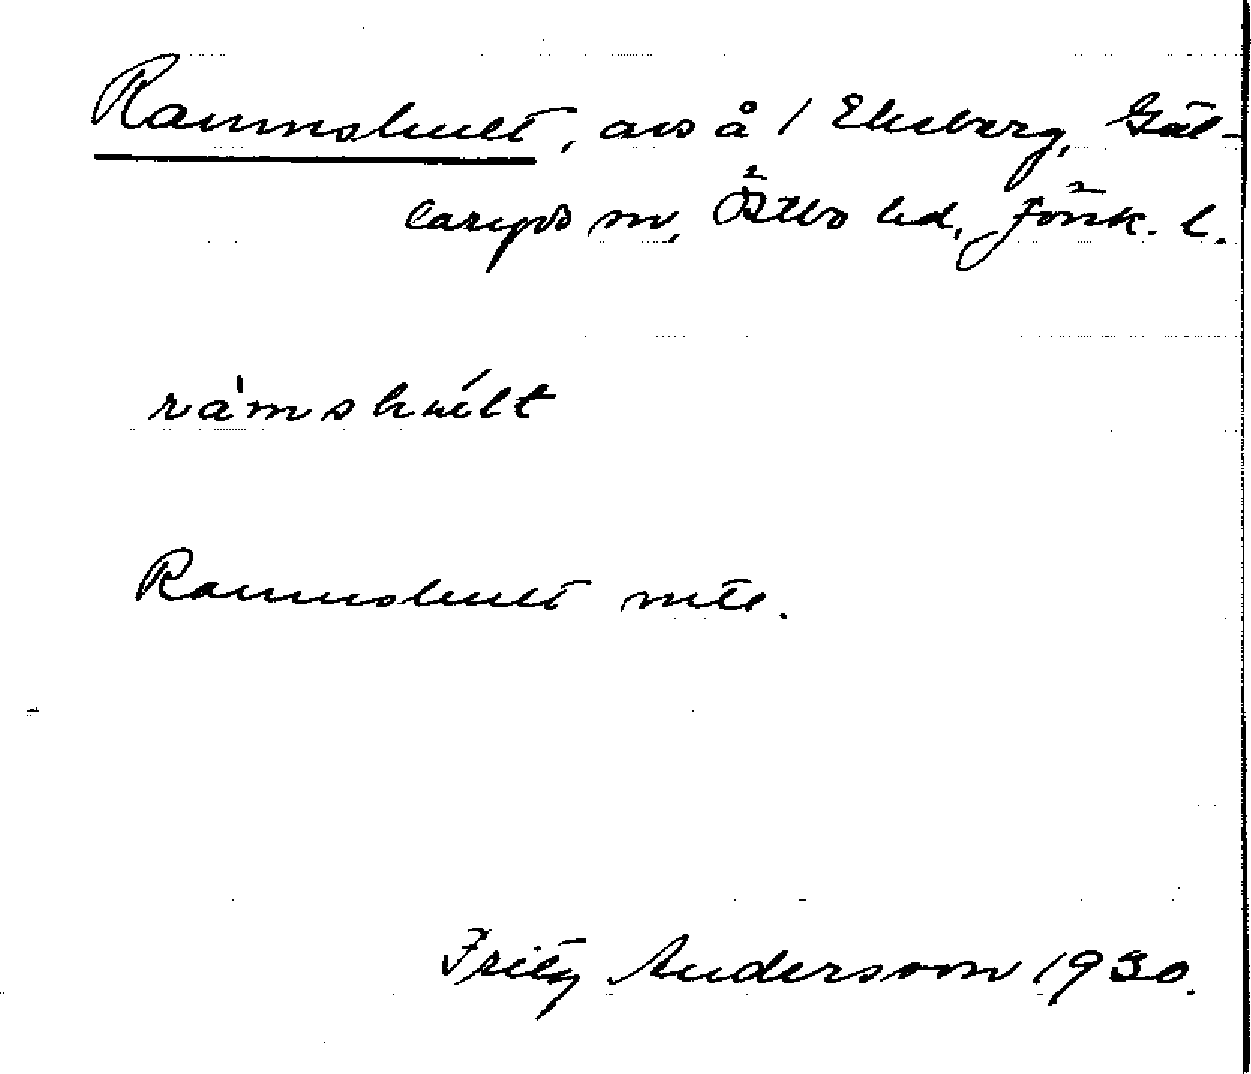 Rammshult, avs å 1 Ekeberg, Gäl-
laryds sn, Östbo hd, Jönk. l.
ràmshúlt
Rammshult mtl.
Fritz Andersson 1930.